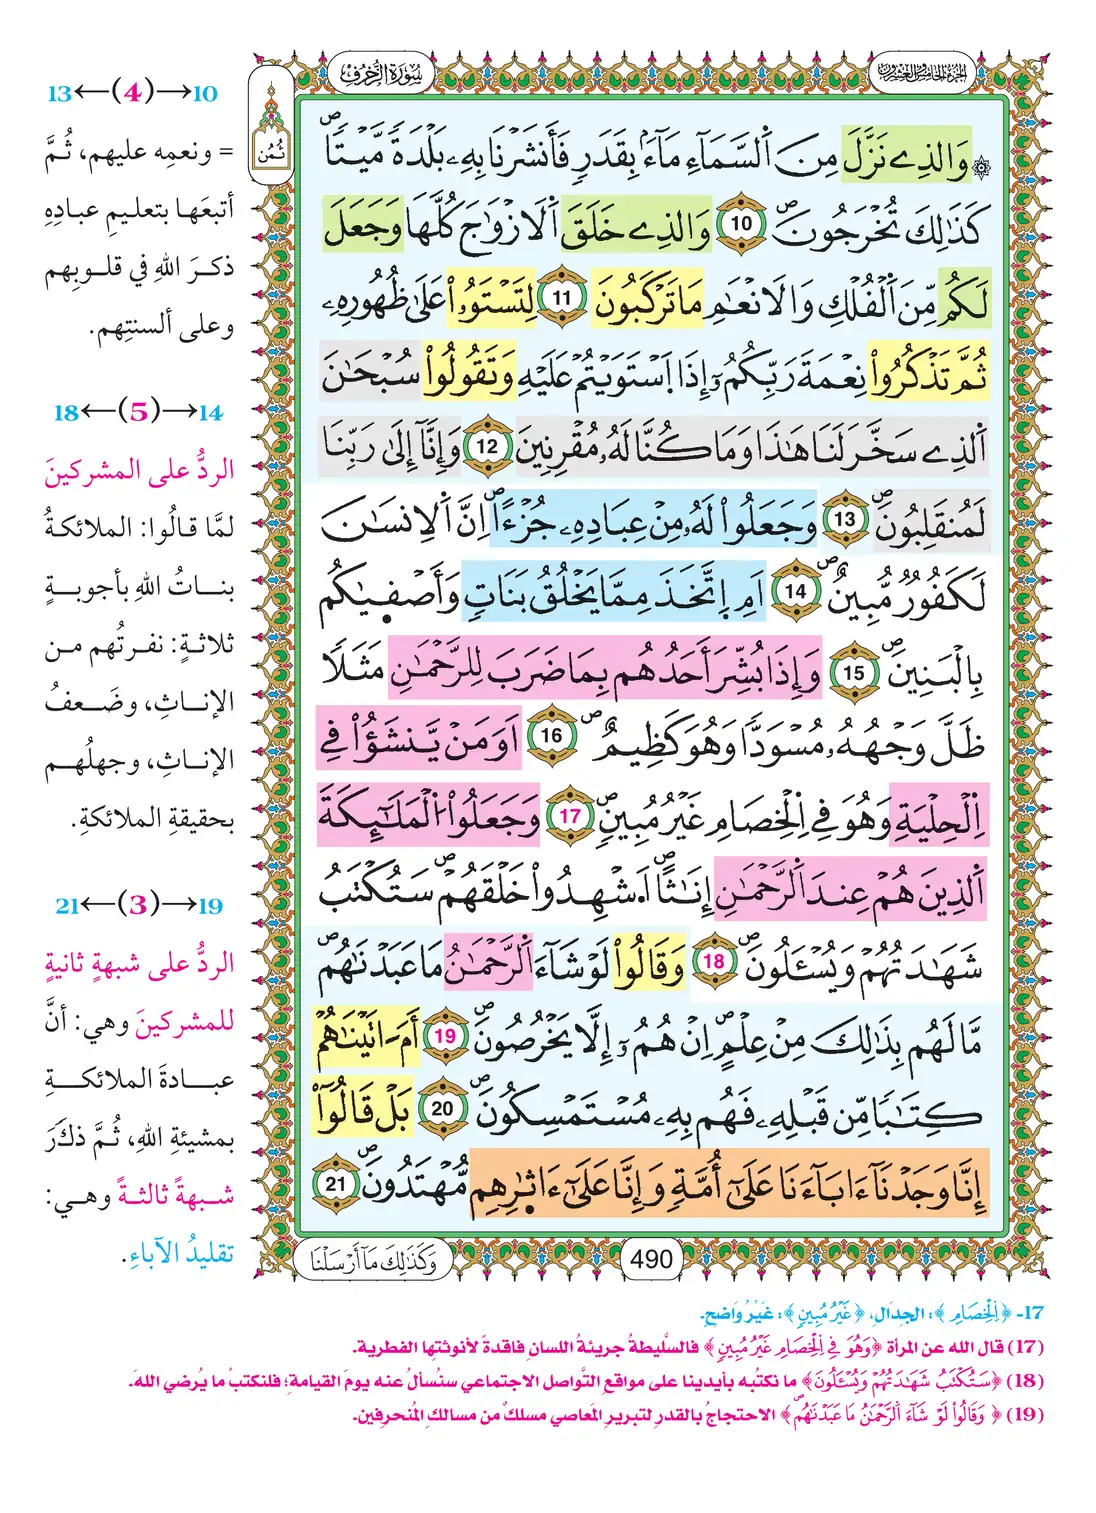 الجزء الخامس والعشرون
سورة الزخرف
ثمن
۞ وَالذِے نَزَّلَ مِنَ اَ۬لسَّمَآءِ مَآءَۢ بِقَدَرٖ فَأَنشَرْنَا بِهِۦ بَلْدَةٗ مَّيْتاٗۖ
كَذَٰلِكَ تُخْرَجُونَۖ 10 وَالذِے خَلَقَ اَ۬لَازْوَٰجَ كُلَّهَا وَجَعَلَ
لَكُم مِّنَ اَ۬لْفُلْكِ وَالَانْعَٰمِ مَا تَرْكَبُونَ 11 لِتَسْتَوُۥاْ عَلَىٰ ظُهُورِهِۦ
ثُمَّ تَذْكُرُواْ نِعْمَةَ رَبِّكُمُۥٓ إِذَا اَ۪سْتَوَيْتُمْ عَلَيْهِ وَتَقُولُواْ سُبْحَٰنَ
اَ۬لذِے سَخَّرَ لَنَا هَٰذَا وَمَا كُنَّا لَهُۥ مُقْرِنِينَ 12 وَإِنَّآ إِلَىٰ رَبِّنَا
لَمُنقَلِبُونَۖ 13 وَجَعَلُواْ لَهُۥ مِنْ عِبَادِهِۦ جُزْءاًۖ اِنَّ اَ۬لِانسَٰنَ
لَكَفُورٞ مُّبِينٌۖ 14 اَمِ اِ۪تَّخَذَ مِمَّا يَخْلُقُ بَنَاتٖ وَأَصْفۭيٰكُم
بِالْبَنِينَۖ 15 وَإِذَا بُشِّرَ أَحَدُهُم بِمَا ضَرَبَ لِلرَّحْمَٰنِ مَثَلاٗ
ظَلَّ وَجْهُهُۥ مُسْوَدّاٗ وَهُوَ كَظِيمٌۖ 16 اَوَمَنْ يَّنشَؤُاْ فِے
اِ۬لْحِلْيَةِ وَهُوَ فِے اِ۬لْخِصَامِ غَيْرُ مُبِينٖۖ 17 وَجَعَلُواْ اُ۬لْمَلَٰٓئِكَةَ
اَ۬لذِينَ هُمْ عِندَ اَ۬لرَّحْمَٰنِ إِنَٰثاًۖ ا۟شْهِدُواْ خَلْقَهُمْۖ سَتُكْتَبُ
شَهَٰدَتُهُمْ وَيُسْـَٔلُونَۖ 18 وَقَالُواْ لَوْ شَآءَ اَ۬لرَّحْمَٰنُ مَا عَبَدْنَٰهُمۖ
مَّا لَهُم بِذَٰلِكَ مِنْ عِلْمٍۖ اِنْ هُمُۥٓ إِلَّا يَخْرُصُونَۖ 19 أَمَ اٰتَيْنَٰهُمْ
كِتَٰباٗ مِّن قَبْلِهِۦ فَهُم بِهِۦ مُسْتَمْسِكُونَۖ 20 بَلْ قَالُوٓاْ
إِنَّا وَجَدْنَآ ءَابَآءَنَا عَلَىٰٓ أُمَّةٖ وَإِنَّا عَلَىٰٓ ءَاثٰ۪رِهِم مُّهْتَدُونَۖ 21
490
وَكَذَٰلِكَ مَآ أَرْسَلْنَا
10→(4)←13
= ونعمِه عليهم، ثُمَّ
أتبعَهَا بتعليمِ عبادِهِ
ذكرَ اللهِ في قلوبِهم
وعلى ألسنتِهم.
14→(5)←18
الردُّ على المشركينَ
لمَّا قالُوا: الملائكةُ
بناتُ اللهِ بأجوبةٍ
ثلاثةٍ: نفرتُهم من
الإناثِ، وضَعفُ
الإناثِ، وجهلُهم
بحقيقةِ الملائكةِ.
19→(3)←21
الردُّ على شبهةٍ ثانيةٍ
للمشركينَ وهي: أنَّ
عبادةَ الملائكةِ
بمشيئةِ اللهِ، ثُمَّ ذكَرَ
شبهةً ثالثةً وهي:
تقليدُ الآباءِ.
17- ﴿اِ۬لْخِصَامِ﴾: الجِدَالِ، ﴿غَيْرُ مُبِينٖ﴾: غَيْرُ وَاضِحٍ.
(17) قال الله عن المرأة ﴿وَهُوَ فِے اِ۬لْخِصَامِ غَيْرُ مُبِينٖ﴾ فالسَّليطةُ جريئةُ اللسانِ فاقدةٌ لأنوثتِها الفطرية.
(18) ﴿سَتُكْتَبُ شَهَٰدَتُهُمْ وَيُسْـَٔلُونَ﴾ ما نكتُبه بأيدينا على مواقعِ التَّواصل الاجتماعي سنُسألُ عنه يومَ القيامةِ؛ فلنكتبْ ما يُرضي الله.
(19) ﴿وَقَالُواْ لَوْ شَآءَ اَ۬لرَّحْمَٰنُ مَا عَبَدْنَٰهُمۖ﴾ الاحتجاجُ بالقدرِ لتبريرِ المَعاصي مسلكٌ من مسالكِ المُنحرفِين.